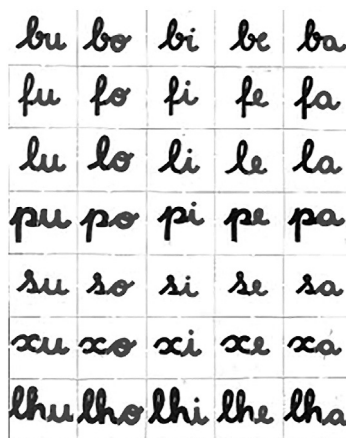 bu bo bi be ba
fu fo fi fe fa
lu lo li le la
pu po pi pe pa
su so si se sa
xu xo xi xe xa
lhu lho lhi lhe lha